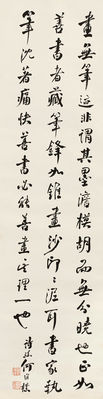 畫無筆迹非謂其墨澹模胡而無分曉也正如
善書者藏筆鋒如錐畫沙印印泥耳書家執
筆沈著痛快善書必能善畫其理一也
詩孫何維樸